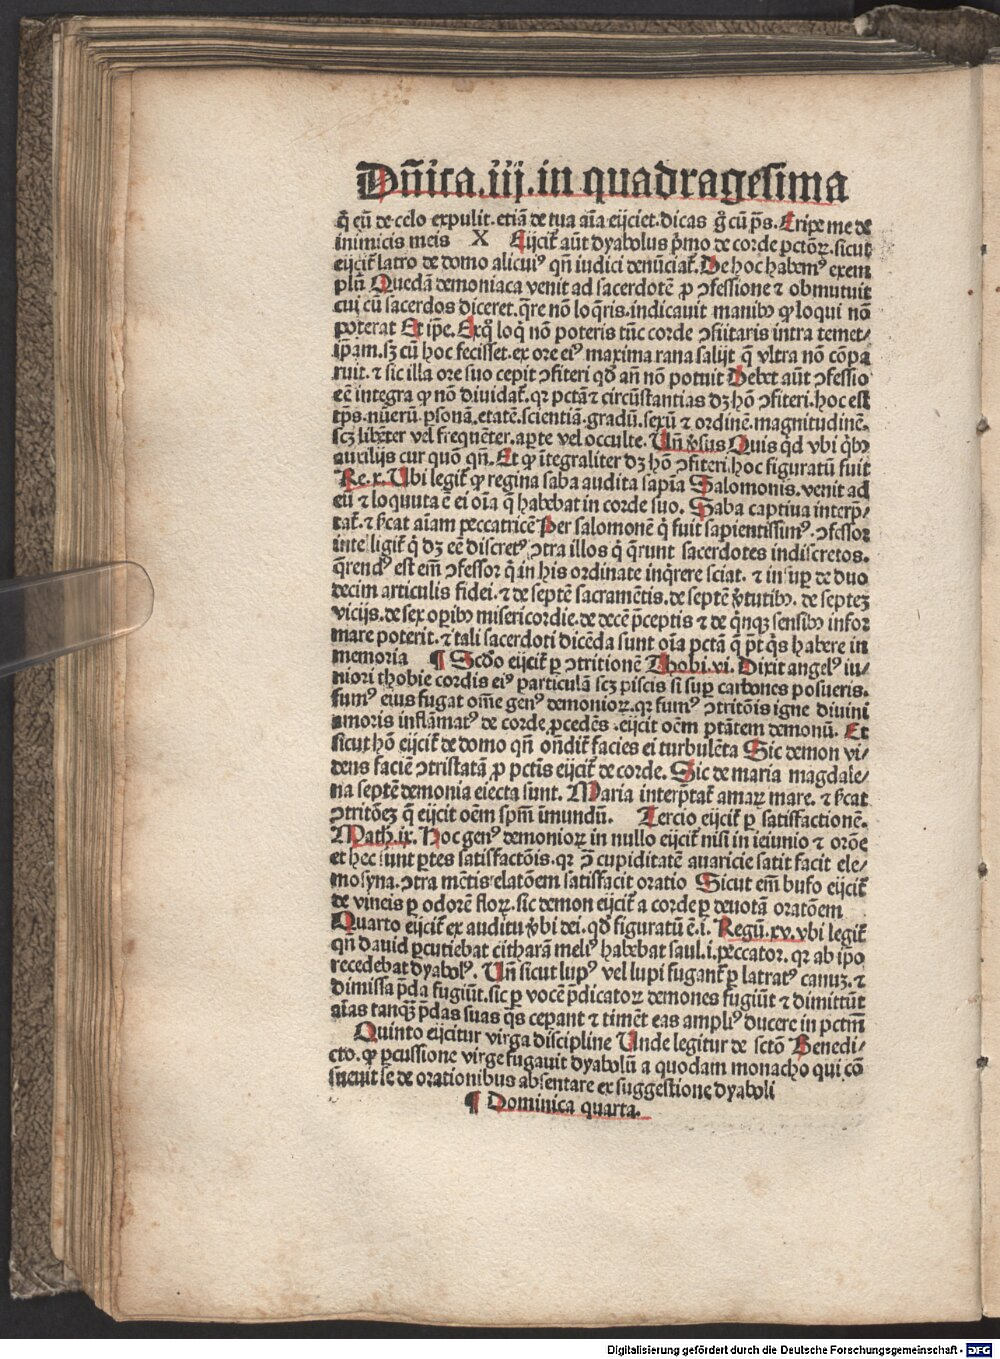 Dñica.iij.in quadragesima
q̃ cũ de celo expulit.etiã de tua aĩa eijciet.dicas g̊ cũ p̃s. Eripe me de
inimicis meis X Eijcit᷑ aũt dyabolus p̃mo de corde pctõꝝ.sicut
eijcit᷑ latro de domo alicuiꝰ qñ iudici denũciat᷑. De hoc habemꝰ exem
plũ Quedã demoniaca venit ad sacerdotẽ ꝓ ↄfessione ⁊ obmutuit
cui cũ sacerdos diceret.q̃re nõ loq̃ris.indicauit manibꝰ ꝙ loqui nõ
poterat Et ip̃e. Exq̊ loq̇ nõ poteris tũc corde ↄfitaris intra temet⸗
ip̃am.sꝫ cũ hoc fecisset.ex ore eiꝰ maxima rana salijt q̃ vltra nõ cõpa
ruit.⁊ sic illa ore suo cepit ↄfiteri qd̃ añ nõ potuit Debet aũt ↄfessio
eẽ integra ꝙ nõ diuidat᷑.qꝛ pctã ⁊ circũstantias dꝫ hõ ↄfiteri.hoc est
tp̃s.nũerũ.ꝑsonã.etatẽ.scientiã.gradũ.sexũ ⁊ ordinẽ.magnitudinẽ.
scꝫ libẽter vel frequẽter.aꝑte vel occulte. Uñ v̓sus Quis q̇d vbi q̇bꝰ
auxilijs cur quõ qñ. Et ꝙ ĩtegraliter dꝫ hõ ↄfiteri.hoc figuratũ fuit
Re.x. Ubi legit᷑ ꝙ regina saba audita sapĩa Salomonis.venit ad
eũ ⁊ loquuta ẽ ei oĩa q̃ habebat in corde suo. Saba captiua interp̃⸗
tat᷑.⁊ s̓cat aĩam peccatricẽ Per salomonẽ q̇ fuit sapientissimꝰ.ↄfessor
intelligit᷑ q̇ dꝫ eẽ discretꝰ ↄtra illos q̇ q̃runt sacerdotes indiscretos.
q̃rendꝰ est em̃ ↄfessor q̇ in his ordinate inq̇rere sciat.⁊ insuꝑ de duo
decim articulis fidei.⁊ de septẽ sacramẽtis.de septẽ v̓tutibꝰ.de septeꝫ
vicijs.de sex oꝑibꝰ misericordie.de decẽ p̃ceptis ⁊ de q̇nqꝫ sensibꝰ infor
mare poterit.⁊ tali sacerdoti dicẽda sunt oĩa pctã q̃ p̃t q̇s habere in
memoria ¶ Scd̃o eijcit᷑ ꝑ ↄtritionẽ Thobi.vi. Dixit angelꝰ iu⸗
niori thobie cordis eiꝰ particulã scꝫ piscis si suꝑ carbones posueris.
fumꝰ eius fugat om̃e genꝰ demonioꝝ.qꝛ fumꝰ ↄtritõis igne diuini
amoris inflãmatꝰ de corde ꝓcedẽs.eijcit oẽm ptãtem demonũ. Et
sicut hõ eijcit᷑ de domo qñ oñdit᷑ facies ei turbulẽta Sic demon vi⸗
dens faciẽ ↄtristatã ꝓ pctis eijcit᷑ de corde. Sic de maria magdale⸗
na septẽ demonia eiecta sunt. Maria interp̃tat᷑ amaꝝ mare.⁊ s̓cat
ↄtritõeꝫ q̃ eijcit oẽm spm̃ ĩmundũ. Tercio eijcit᷑ ꝑ satisfactionẽ.
Math.ix. Hoc genꝰ demonioꝝ in nullo eijcit᷑ nisi in ieiunio ⁊ orõe
et hec sunt ꝑtes satisfactõis.qꝛ ↄ̃ cupiditatẽ auaricie satisfacit ele⸗
mosyna.ↄtra mẽtis elatõem satisfacit oratio Sicut em̃ bufo eijcit᷑
de vineis ꝑ odorẽ floꝝ.sic demon eijcit᷑ a corde ꝑ deuotã oratõem
Quarto eijcit᷑ ex auditu v̓bi dei.qd̃ figuratũ ẽ.i. Regũ.xv.vbi legit᷑
qñ dauid ꝑcutiebat citharã meliꝰ habebat saul.i.peccator.qꝛ ab ip̃o
recedebat dyabolꝰ. Uñ sicut lupꝰ vel lupi fugant᷑ ꝑ latratꝰ canuꝫ.⁊
dimissa p̃da fugiũt.sic ꝑ vocẽ p̃dicatoꝝ demones fugiũt ⁊ dimittũt
aĩas tanqꝫ p̃das suas q̃s cepant ⁊ timẽt eas ampliꝰ ducere in pctm̃
Quinto eijcitur virga discipline Unde legitur de sctõ Benedi⸗
cto.ꝙ ꝑcussione virge fugauit dyabolũ a quodam monacho qui cõ
sueuit se de orationibus absentare ex suggestione dyaboli
¶ Dominica quarta.
Digitalisierung gefördert durch die Deutsche Forschungsgemeinschaft - DFG